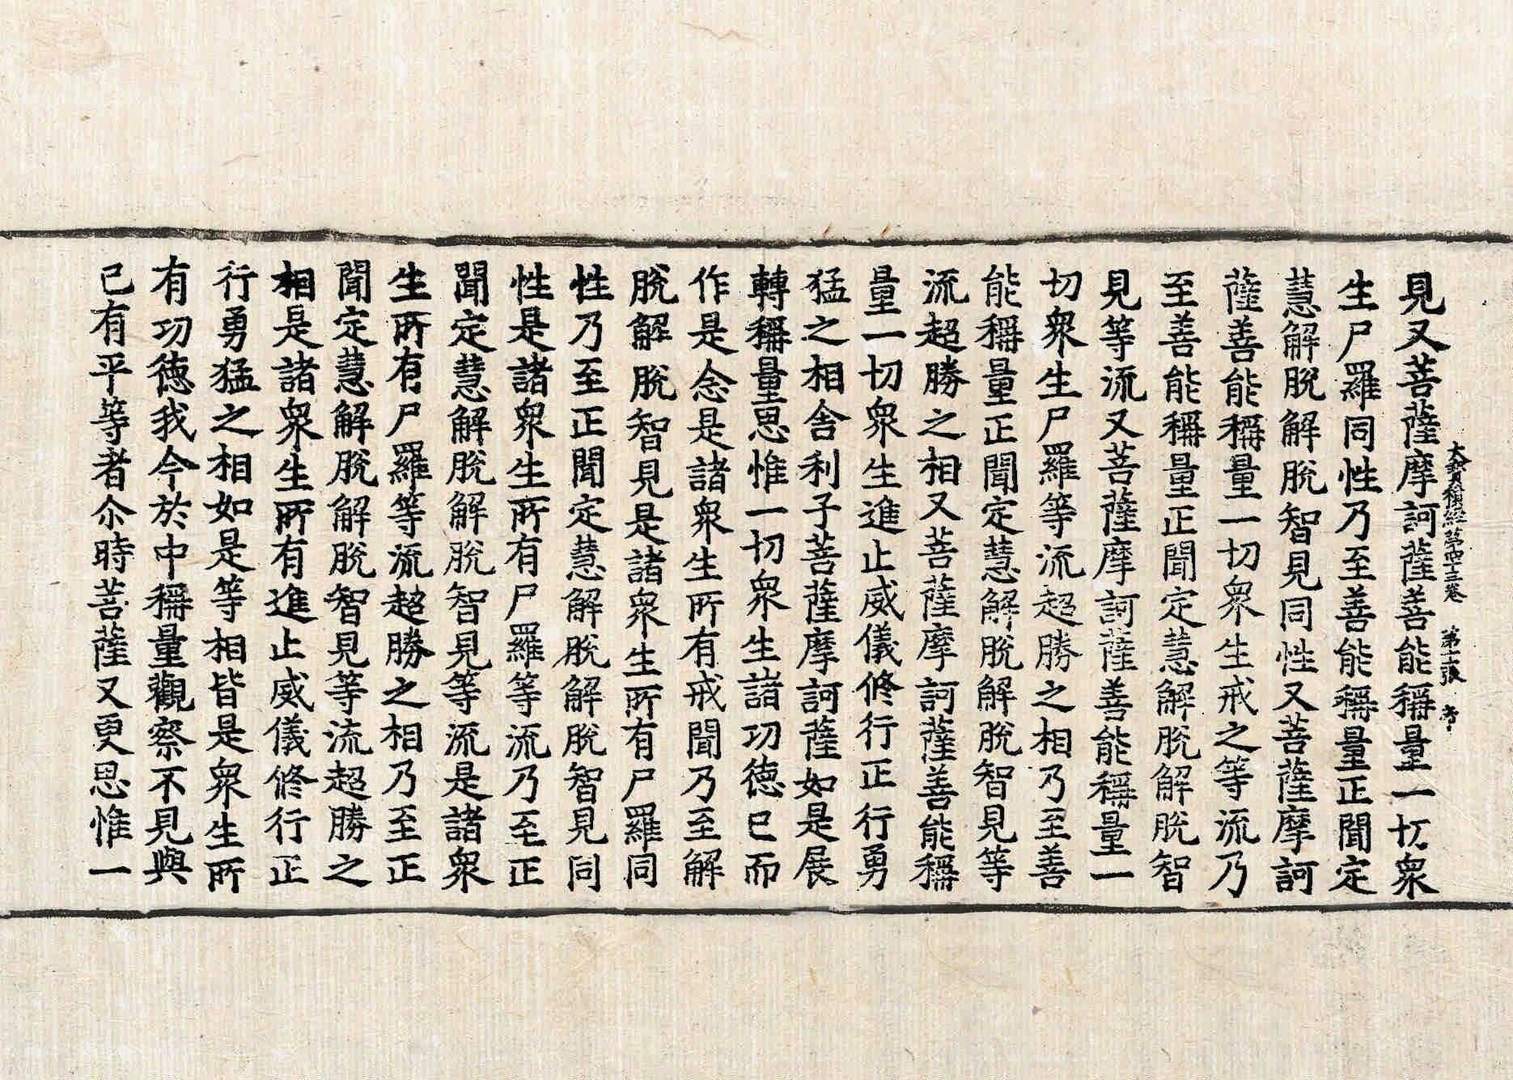 大寶積經第四十三卷 第 張 考
見又菩薩摩訶薩善能稱量一切衆
生尸羅同性乃至善能稱量正聞定
慧解脫解脫智見同性又菩薩摩訶
薩善能稱量一切衆生戒之等流乃
至善能稱量正聞定慧解脫解脫智
見等流又菩薩摩訶薩善能稱量一
切衆生尸羅等流超勝之相乃至善
能稱量正聞定慧解脫解脫智見等
流超勝之相又菩薩摩訶薩善能稱
量一切衆生進止威儀修行正行勇
猛之相舍利子菩薩摩訶薩如是展
轉稱量思惟一切衆生諸功徳已而
作是念是諸衆生所有戒聞乃至解
脫解脫智見是諸衆生所有尸羅同
性乃至正聞定慧解脫解脫智見同
性是諸衆生所有尸羅等流乃至正
聞定慧解脫解脫智見等流是諸衆
生所有尸羅等流超勝之相乃至正
聞定慧解脫解脫智見等流超勝之
相是諸衆生所有進止威儀修行正
行勇猛之相如是等相皆是衆生所
有功徳我今於中稱量觀察不見與
已有平等者尒時菩薩又更思惟一